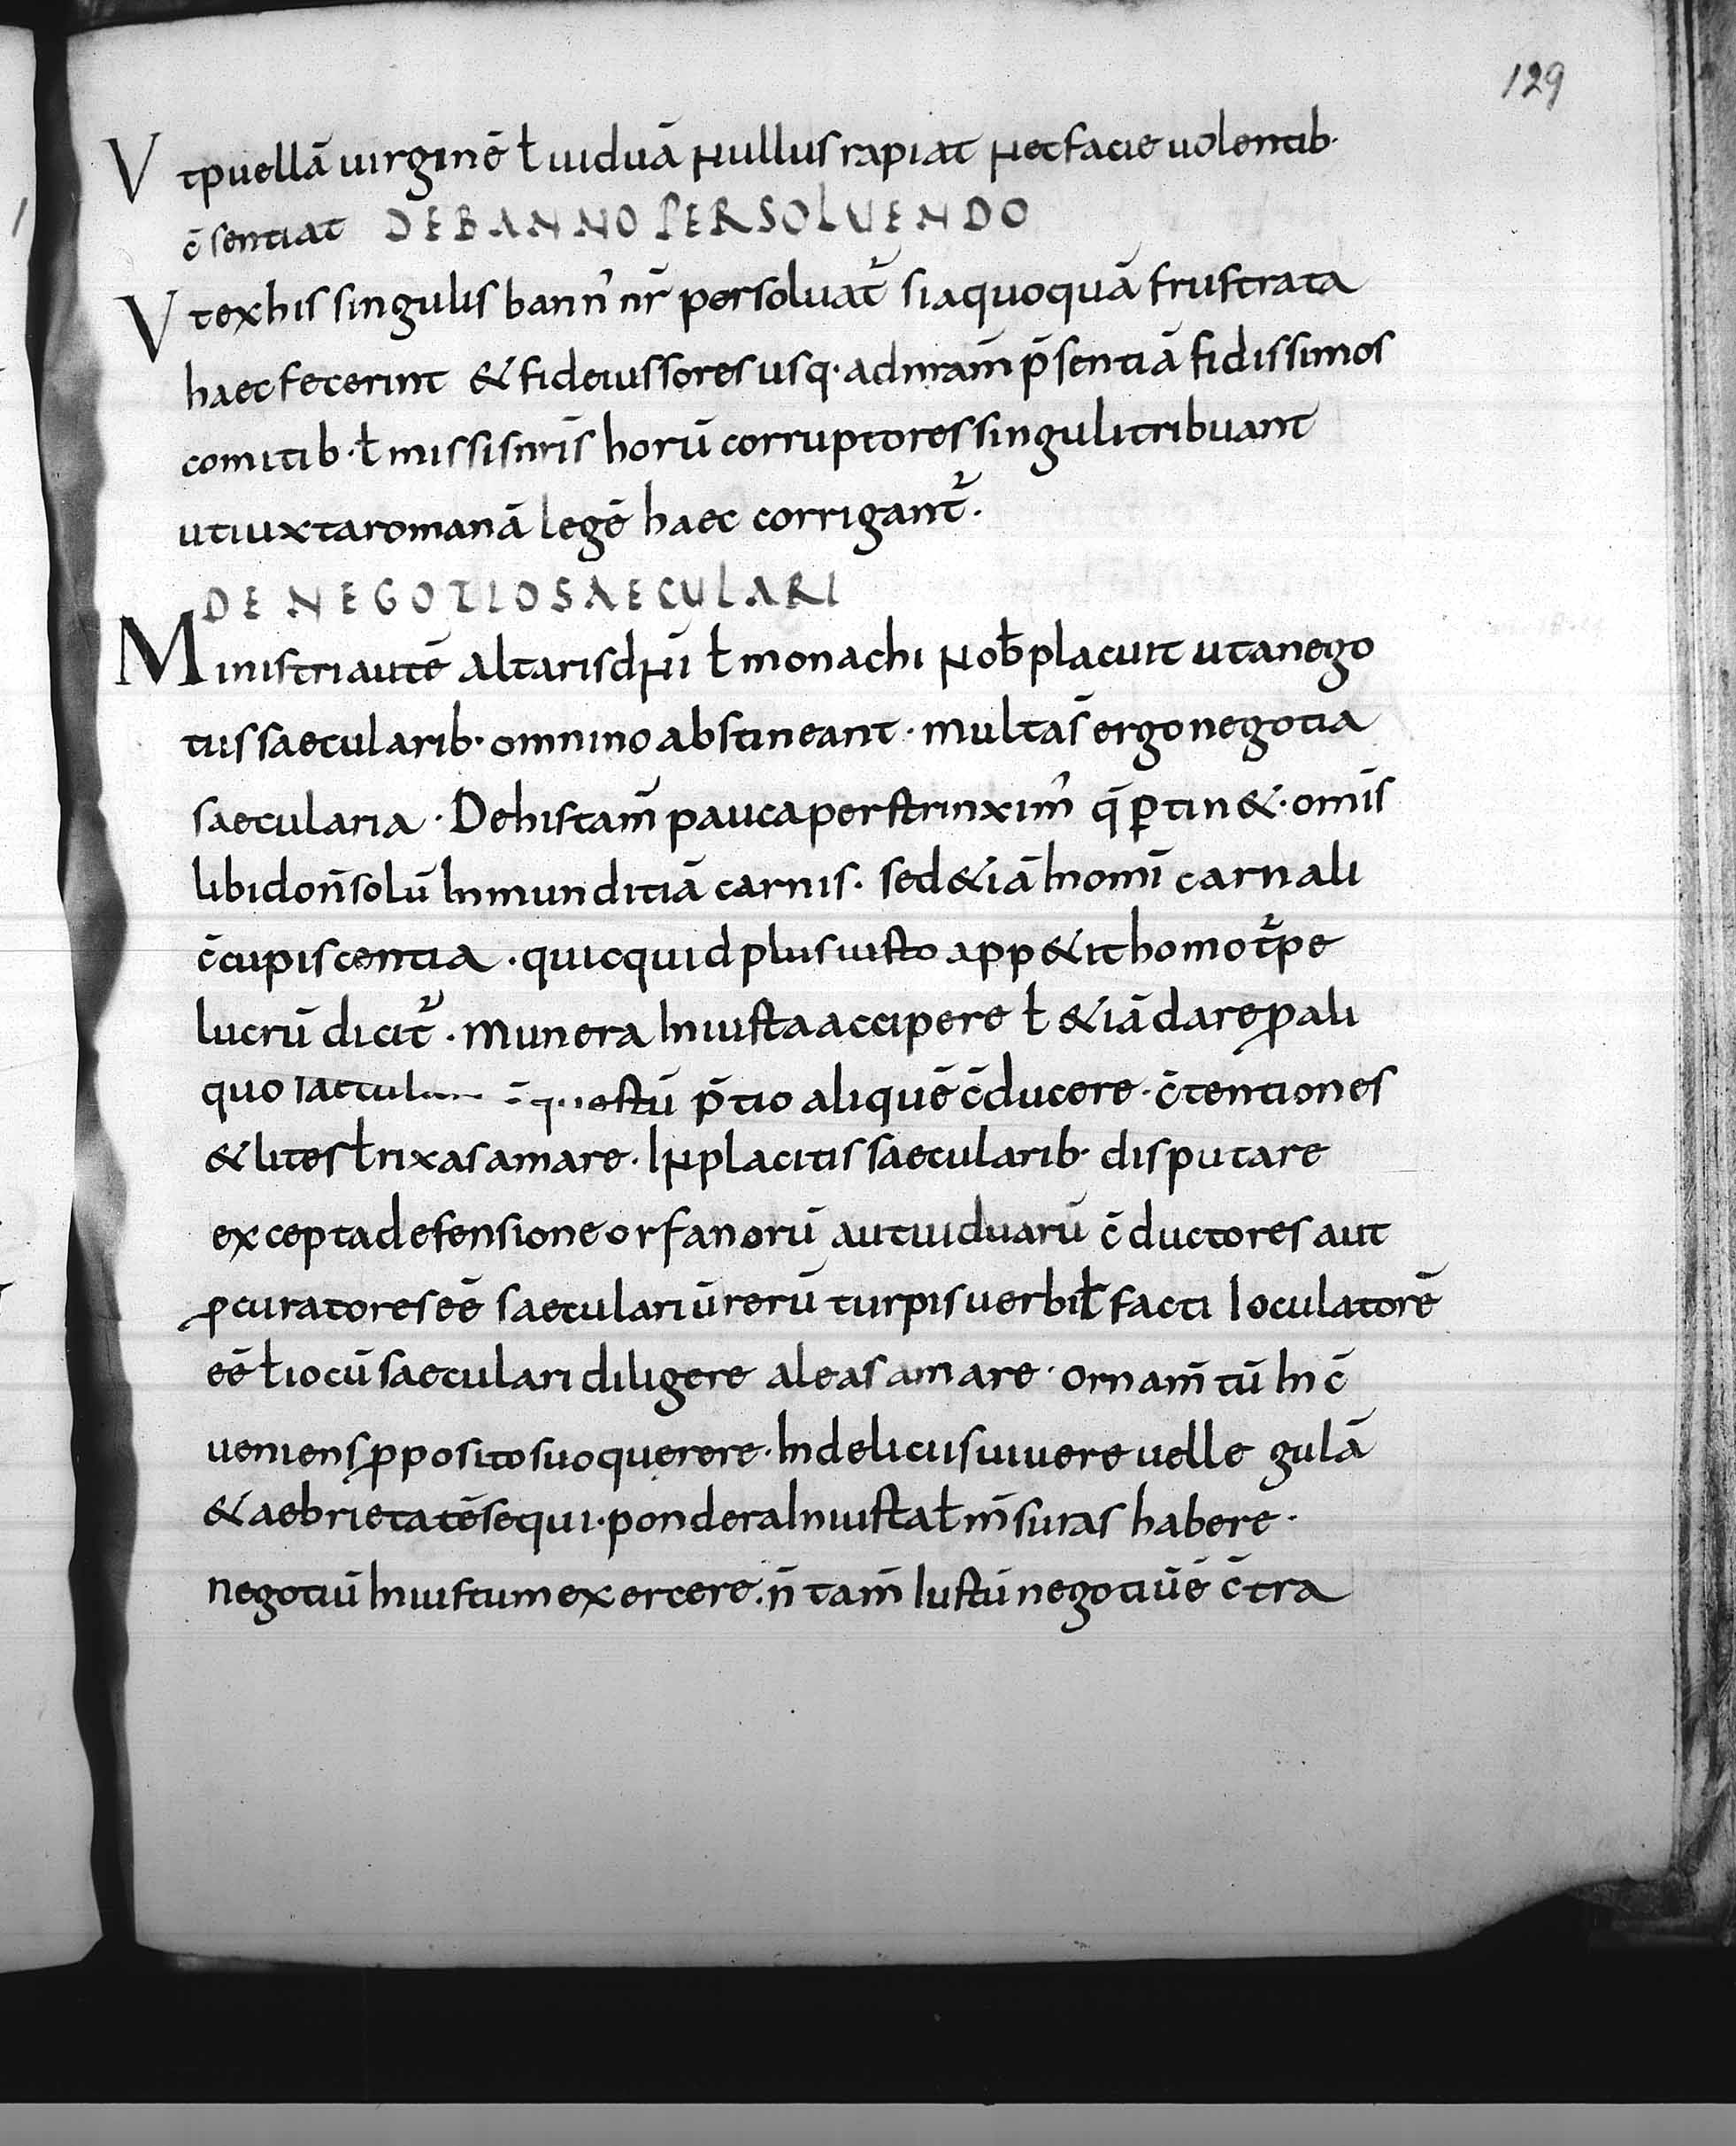 129
Vt puellā uirginē ł uiduā nullus rapiat nec facie uolentib·
c̄sentiat DE BANNO PERSOLUENDO
Vt ex his singulis bann' nr̄ persoluat᷑ si a quoquā frustrata
haec fecerint & fideiussores usq· ad nram̄ p̄sentiā fidissimos
comitib· ł missis nris̄ horū corruptores singuli tribuant
ut iuxta romanā legē haec corrigant᷑.
DE NEGOTIO SAECULARI
Ministri autē altaris dnī ł monachi nob̄ placuit ut a nego
tiis saecularib· omnino abstineant · multas̄ ergo negotia
saecularia · De his tam̄ pauca perstrinxim' q̄ ꝑtin& · omis̄
libido n̄ solū Inmunditiā carnis · sed &iā In omī carnali
c̄cupiscentia · quicquid plus iusto app&it homo t᷑pe
lucrū dicit᷑ · munera Iniusta accipere ł &iā dare ꝓ ali
quo p̄tio aliquē c̄ducere · c̄tentiones
& lites ł rixas amare · IN placitis saecularib· disputare
excepta defensione orfanorū aut uiduarū c̄ductores aut
ꝓcuratores eē saeculariū rerū turpis uerbi ł facti Ioculatorē
eē ł iocū saeculari diligere aleas amare · ornam̄tū In c̄
ueniens ꝓposito suo querere · In deliciis uiuere uelle gulā
& aebrietatē sequi · pondera Iniusta ł m̄suras habere ·
negotiū Iniustum exercere . n̄ tam̄ Iustū negotiū ē c̄tra